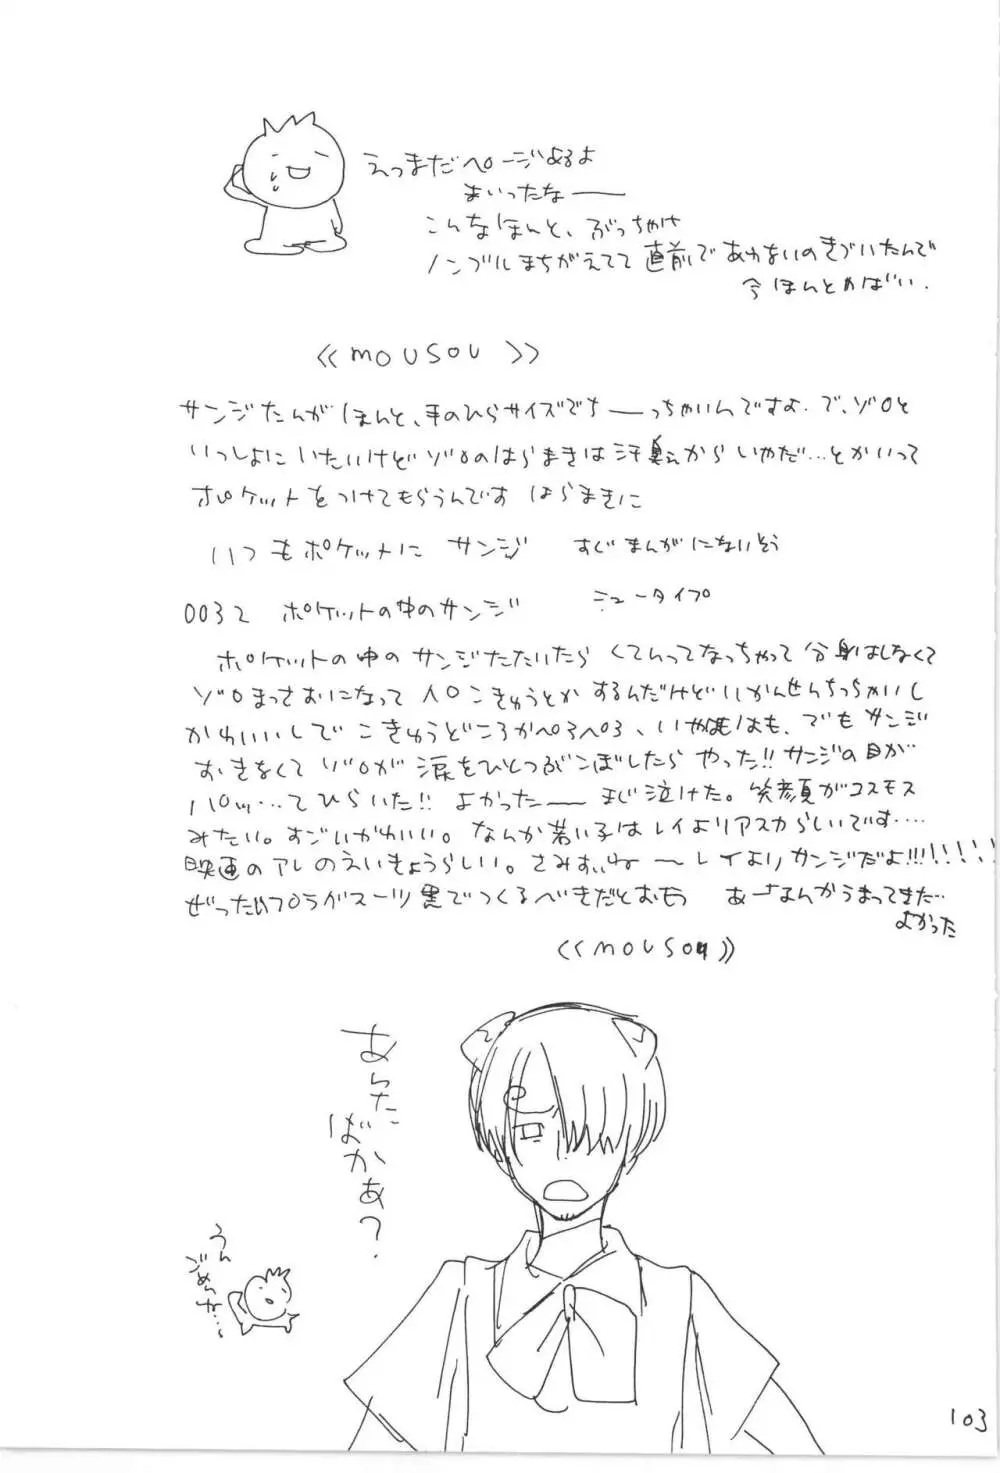 えっまだページあるよ
まいったなー
こんなほんと、ぶっちゃけ
ノンブルまちがえてて直前であわないのきづいたんで
今ほんとやばい.
《MOUSOU》
サンジたんがほんと、手のひらサイズでちーっちゃいんですよ. で、ゾロと
いっしょにいたいけどゾロのはらまきは汗臭えからいやだ…とかいって
ポケットをつけてもらうんです はらまきに
いつもポケットに サンジ すぐまんがにないそう
0032 ポケットの中のサンジ ミュータイプ
ポケットの中のサンジたたいたら くてんってなっちゃって 分身はしなくて
ゾロまっさおになって 人口こきゅうとかするんだけどいかんせんちっちゃいし
かわいいしで こきゅうどころかペろペろ、いやはや、でもサンジ
おきなくて ゾロが 涙をひとつぶこぼしたら やった!! サンジの目が
パッ…てひらいた!! よかったー まじ泣けた。笑顔がコスモス
みたい。すごいかわいい。なんか若い子はレイよりアスカらしいです….
映画のアレのえいきょうらしい。さみすぃねーレイよりサンジだよ!!!!!!!!
ぜったいプラグスーツ黒でつくるべきだとおもう あーなんかうまってきた…
よかった
《MOUSOU》
あんた
ばかぁ?
うん
ごめんな…。
103